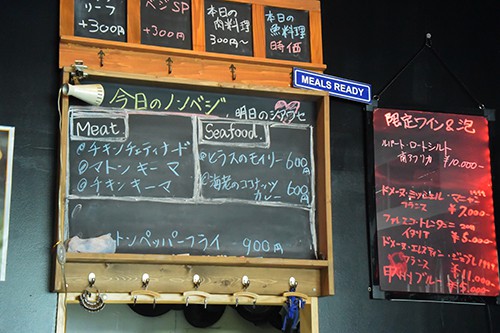 リーフ
+300円
ベジSP
+300円
本日の
肉料理
300円~
本日の
魚料理
時価
MEALS READY
今日のノンベジ
明日のシアワセ
Meat
@チキンチェティナード
@マトンキーマ
@チキンキーマ
Seafood.
@ヒラスのモイリー 600円
@海老のココナッツ
カレー 600円
トンペッパーフライ 900円
限定ワイン&泡
ルパート・ロートシルト
南アフリカ ¥10,000-
フランス ¥7,000-
イタリア ¥8,000-
フランス ¥11,000-